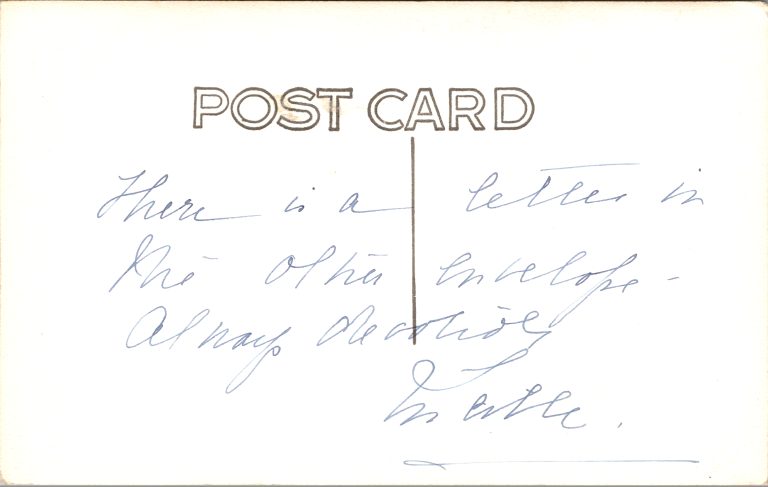 POST CARD
There is a letter in
the other envelope -
Always devotedly